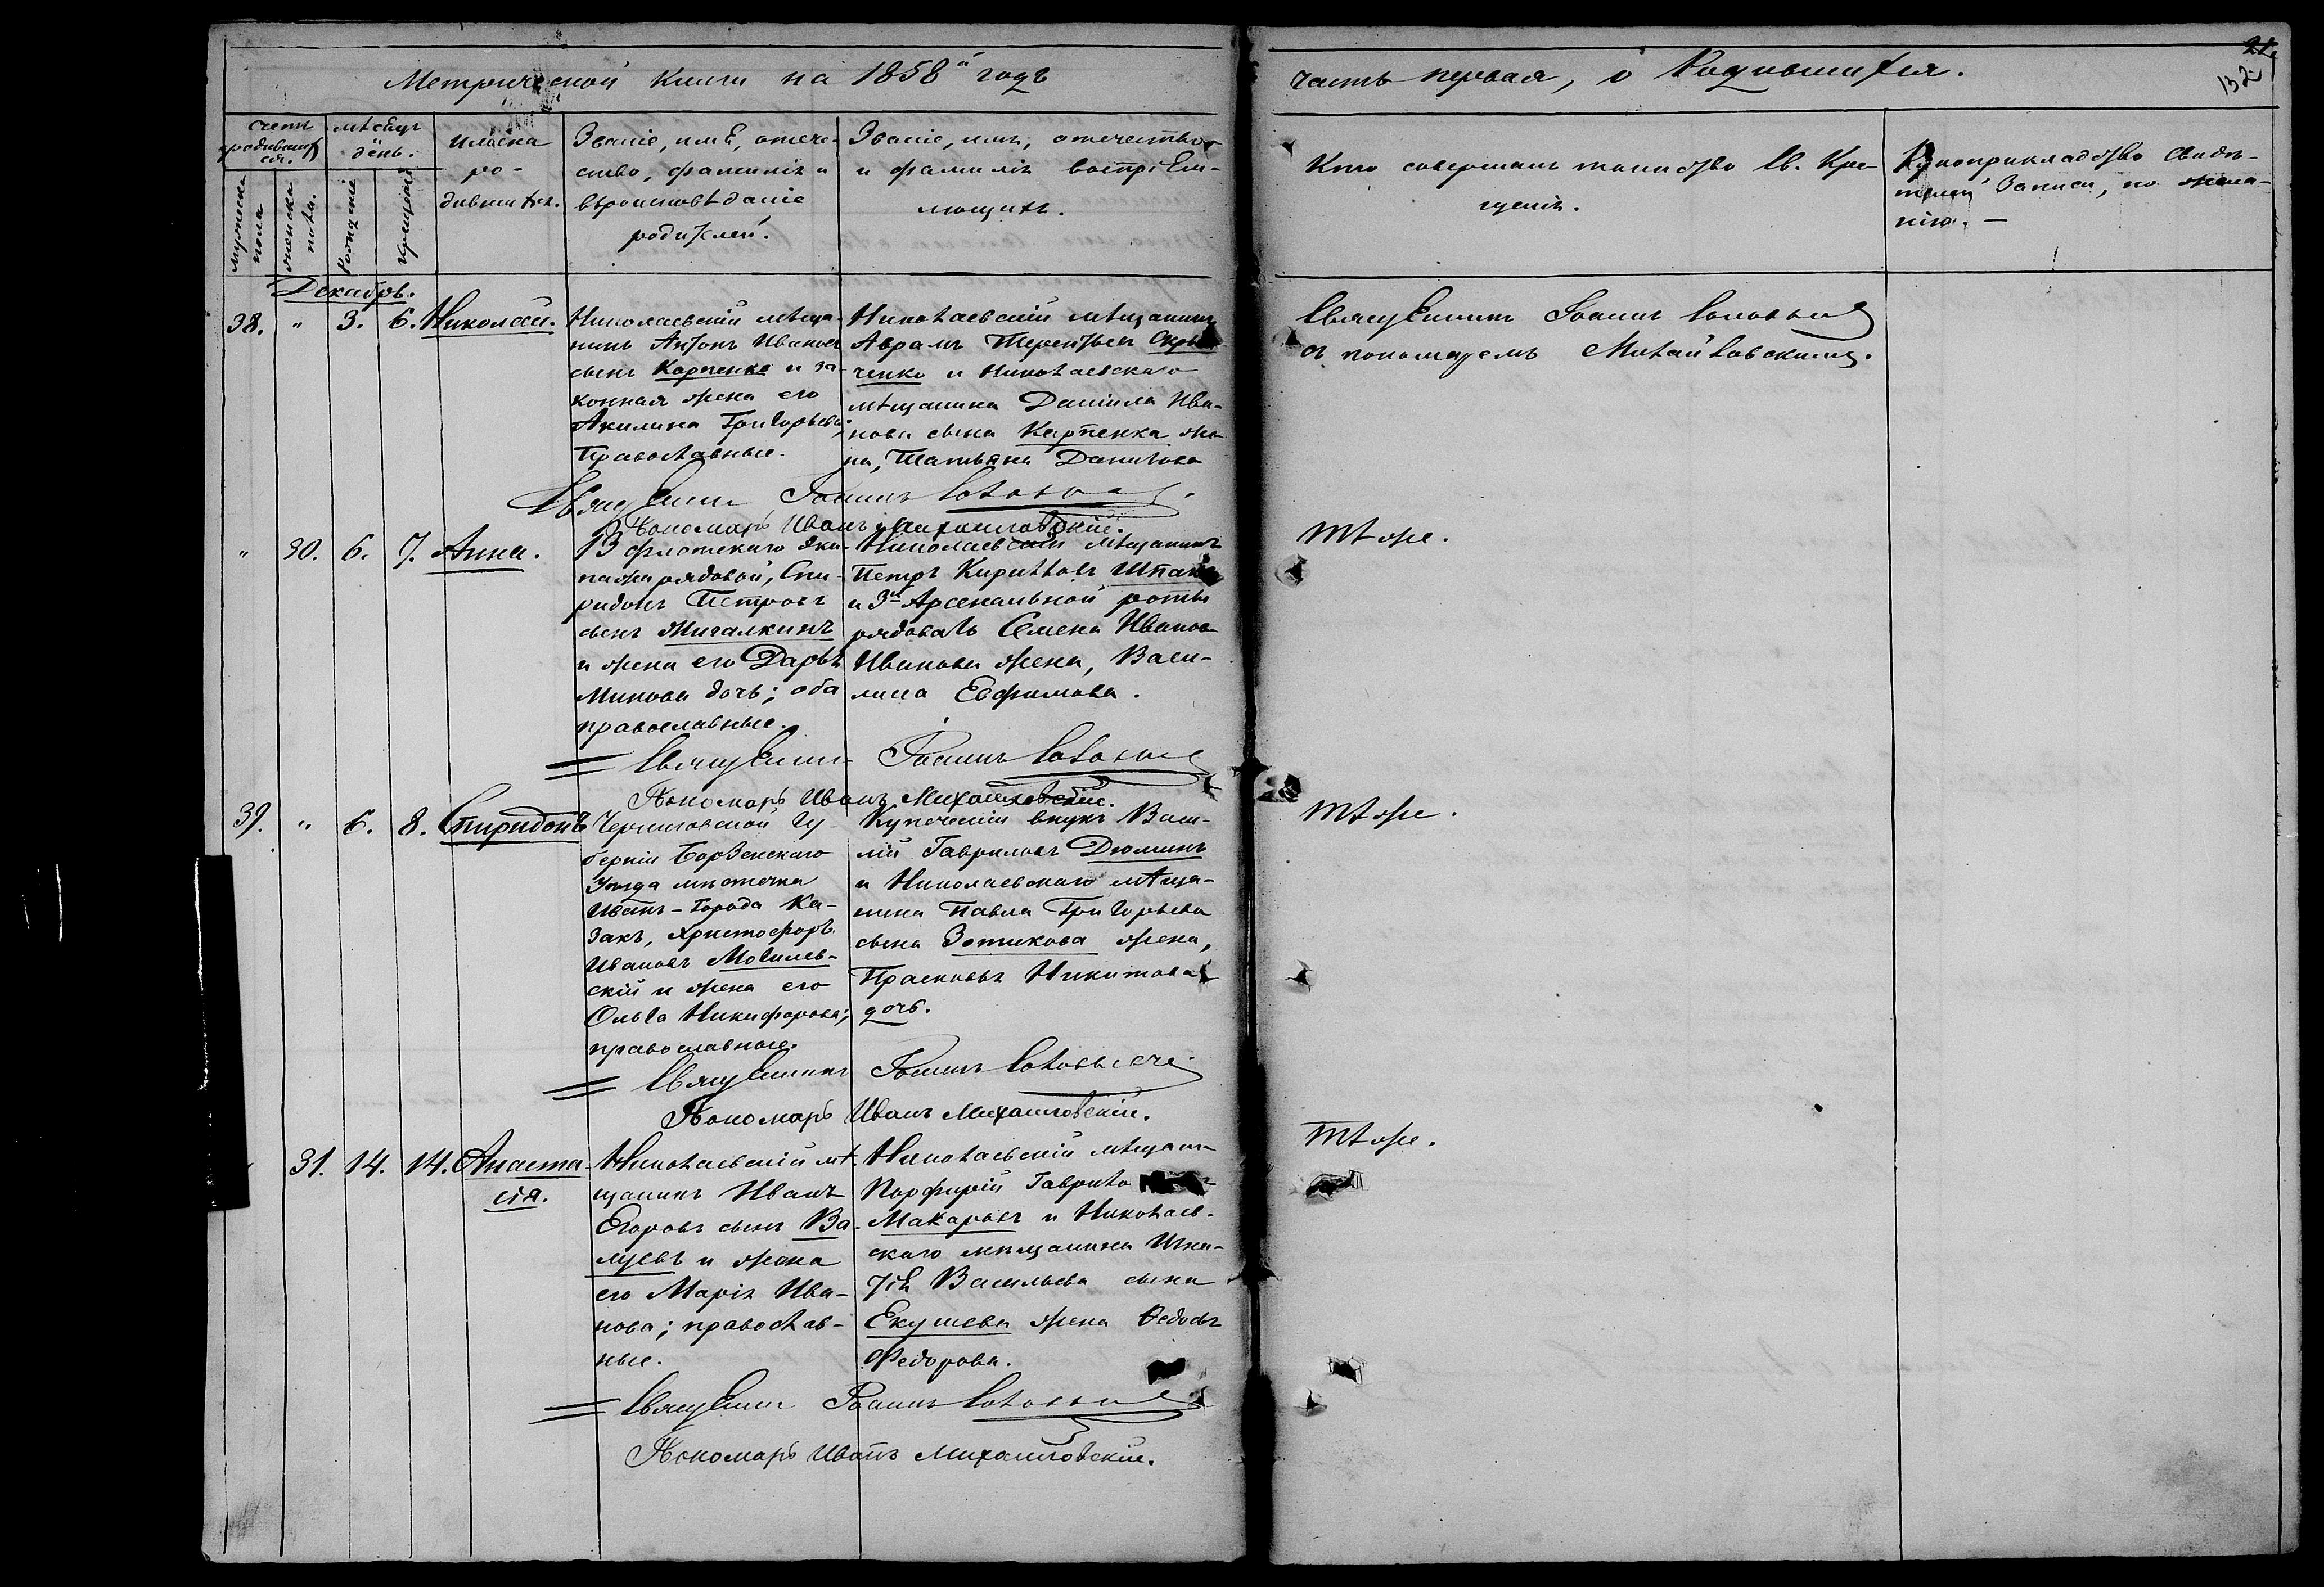 Метрической книги на 1858й годъ
часть первая, о Родившихся.
21.
132
счетъ родившихся.
мужеска пола
женска пола.
мѣсяцъ день.
Рожденія
крещенія
имена ро-
дившихся.
Званіе, имя, отече-
ство, фамилія и
вѣроисповѣданіе
родителей.
Званіе, имя, отечество
и фамилія воспріем-
мющихъ.
Кто совершалъ таинство Св. Кре-
щенія.
Рукоприкладство свидѣ-
телей Записи, по жела-
нію. —
Декабрь.
38. " 3. 6. Николай.
Николаевскій мѣща-
нинъ Антонъ Ивановъ
сынъ Карпенко и за-
конная жена его
Акилина Григорьева;
Православные.
Николаевскій мѣщанинъ
Аврамъ Терентьевъ
ченко и Николаевскаго
мѣщанина Даніила Ива-
нова сына Карпенка же-
на, Татьяна Данилова
Священникъ Іоаннъ
съ пономаремъ Михайловскимъ.
Священникъ Іоаннъ
Пономарь Иванъ Михайловскій.
" 30. 6. 7. Анна.
13 флотскаго эки-
пажа рядовой, Спи-
ридонъ Петровъ
сынъ Мигалкинъ
и жена его Дарья
Минова дочь; оба
православные.
Николаевскій мѣщанинъ
Петръ Кирилловъ
и 3й Арсенальной роты
рядоваго Семена Иванова
Иванова жена, Васи-
лиса Евфимова.
Тѣ же.
Священникъ Іоаннъ
Пономарь Иванъ Михайловскій.
39. " 6. 8. Спиридонъ
Черниговской гу-
берніи Борзенскаго
Уѣзда мѣстечка
Иванъ-Города Ка-
закъ, Христофоръ
Ивановъ Могилев-
скій и жена его
Ольга Никифорова;
православные.
Купеческій внукъ Васи-
лій Гавриловъ Дюминъ
и Николаевскаго мѣща-
нина Павла Григорьева
сына Зотикова жена,
Прасковья Никитова
дочь.
Тѣ же.
Священникъ Іоаннъ
Пономарь Иванъ Михайловскій.
31. 14. 14. Анаста-
сія.
Николаевскій мѣ-
щанинъ Иванъ
Егоровъ сынъ Ва-
луевъ и жена
его Марія Ива-
нова; православ-
ные.
Николаевскій мѣщанин
Порфирій Гаврило
Макаровъ и Николаев-
скаго мѣщанина Игна-
тія Васильева сына
Екушева жена Ѳедосья
Федорова.
Тѣ же.
Священникъ Іоаннъ
Пономарь Иванъ Михайловскій.